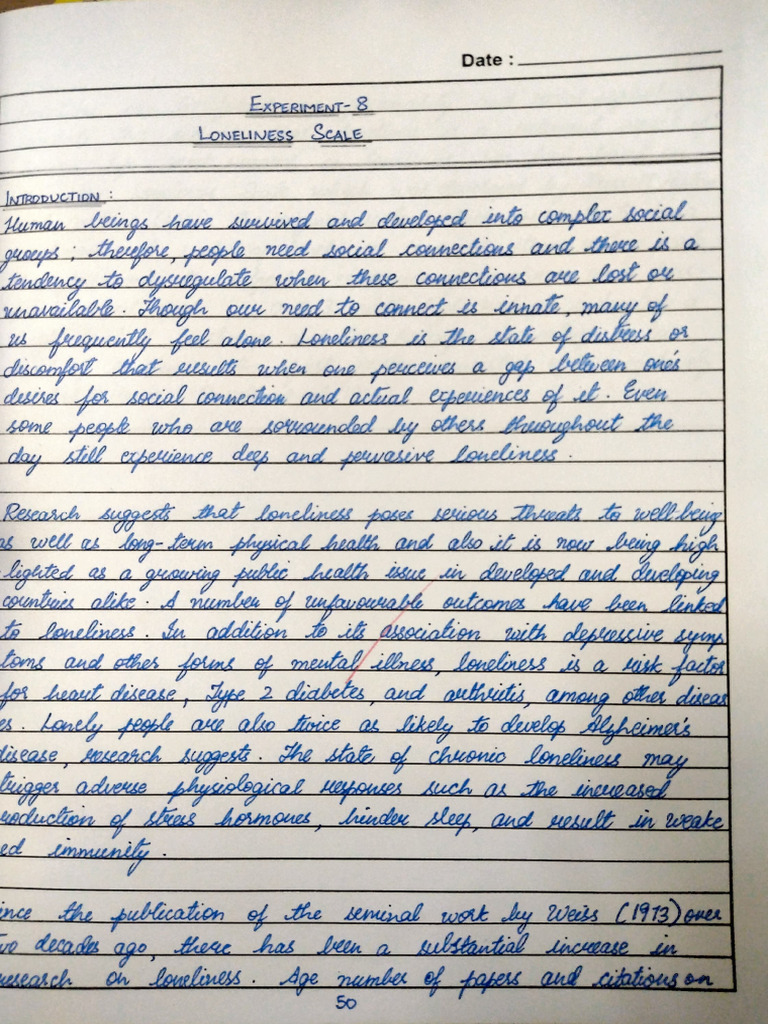 Date :
EXPERIMENT-8
LONELINESS SCALE
INTRODUCTION :
Human beings have survived and developed into complex social
groups ; therefore, people need social connections and there is a
tendency to dysregulate when these connections are lost or
unavailable. Though our need to connect is innate, many of
us frequently feel alone. Loneliness is the state of distress or
discomfort that results when one perceives a gap between one's
desires for social connection and actual experiences of it. Even
some people who are sorrounded by others throughout the
day still experience deep and pervasive loneliness.
Research suggests that loneliness poses serious threats to well-being
as well as long-term physical health and also it is now being high
-lighted as a growing public health issue in developed and developing
countries alike. A number of unfavourable outcomes have been linked
to loneliness. In addition to its association with depressive symp
toms and other forms of mental illness, loneliness is a risk factor
for heart disease, Type 2 diabetes, and arthritis, among other diseas
es. Lonely people are also twice as likely to develop Alzheimer's
disease, research suggests. The state of chronic loneliness may
trigger adverse physiological responses such as the increased
roduction of stress hormones, hinder sleep, and result in weake
ed immunity.
ince the publication of the seminal work by Weiss (1973) over
wo decades ago, there has been a substantial increase in
research on loneliness. Age number of papers and citations on
50